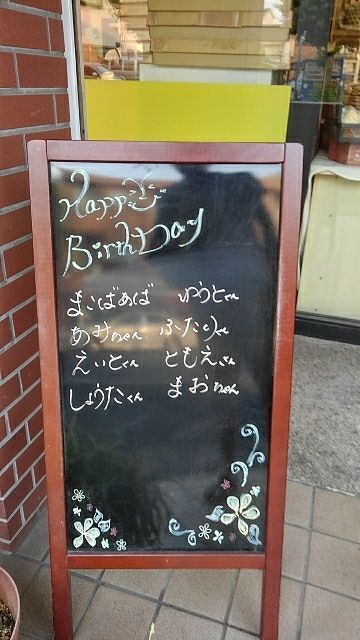 Happy
Birth Day
まこばあば ゆうとくん
あみちゃん
えいとくん ともえさん
しょうたくん まおちゃん